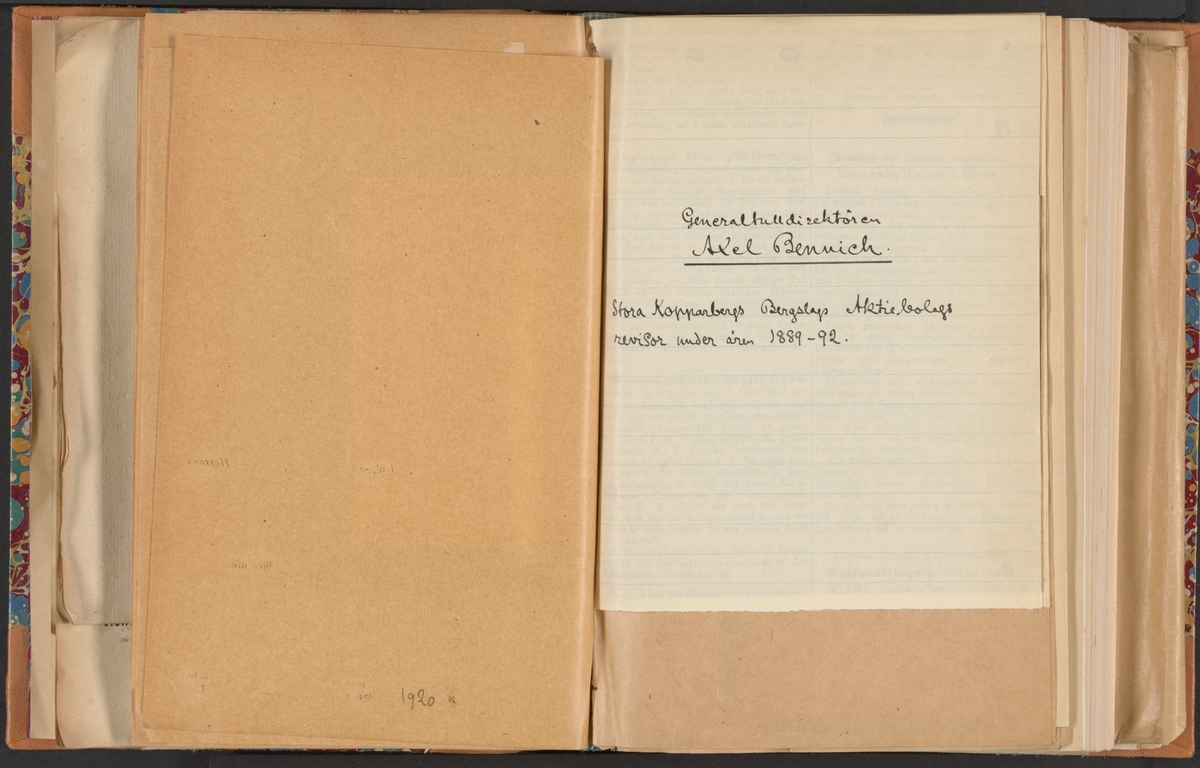 1920
Generaltulldirektören
Axel Bennich.
Stora Kopparbergs Bergslags Aktiebolags
revisor under åren 1889-92.